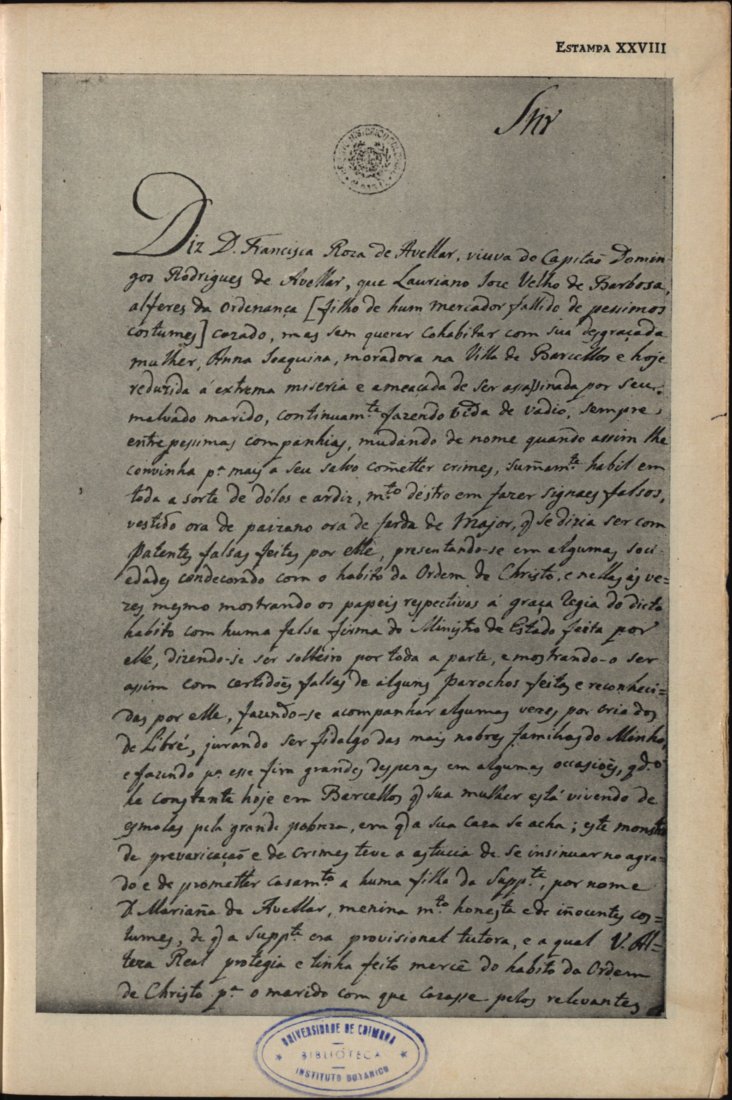 ESTAMPA XXVIII
Snr
Diz D. Francisca Roza de Avellar, viuva do Capitaõ Domin
gos Rodrigues de Avellar, que Lauriano Joze Velho de Barbosa,
alferes da Ordenança [filho de hum mercador fallido de pessimos
costumes] cazado, mas sem querer cohabitar com sua desgraçada
mulher, Anna Joaquina, moradora na Villa de Barcellos e hoje
reduzida á extrema miseria e ameaçada de ser assassinada por seu
malvado marido, continuam.te fazendo vida de vadio, sempre
entre pessimas companhias, mudando de nome quando assim lhe
convinha p.a mais a seu salvo cometter crimes, sum̃am.te habil em
toda a sorte de dólos e ardiz, m.to déstro em fazer signaes falsos,
vestido ora de paizano ora de farda de Major, q̃ se dizia ser com
Patentes falsas feitas por elle, presentando-se em algumas soci-
edades condecorado com o habito da Ordem de Christo, e nellas ás ve=
zes mesmo mostrando os papeis respectivos á graça regia do dicto
habito com huma falsa firma do Ministro de Estado feita por
elle, dizendo-se ser solteiro por toda a parte, e mostrando-o ser
assim com certidões falsas de alguns Parochos feitas e reconheci-
das por elle, fazendo-se acompanhar algumas vezes por criados
de Libré, jurando ser fidalgo das mais nobres familias do Minho,
e fazendo p.a esse fim grandes despezas em algumas occasiões, qd.o
he constante hoje em Barcellos q̃ sua mulher está vivendo de
esmolas pela grande pobreza, em q̃ a sua caza se acha; este monstro
de prevaricaçaõ e de crimes teve a astucia de se insinuar no agra=
do e de prometter cazam.to a huma filha da Supp.te, por nome
D. Mariañna de Avellar, menina m.to honesta e de iñocentes cos=
tumes, de q̃ a Supp.te era provisional tutora, e a qual V. Al=
teza Real protegia e tinha feito mercê do habito da Ordem
de Christo p.a o marido com que cazasse pelos relevantes
UNIVERSIDADE DE COIMBRA
BIBLIOTECA
INSTITUTO BOTANICO